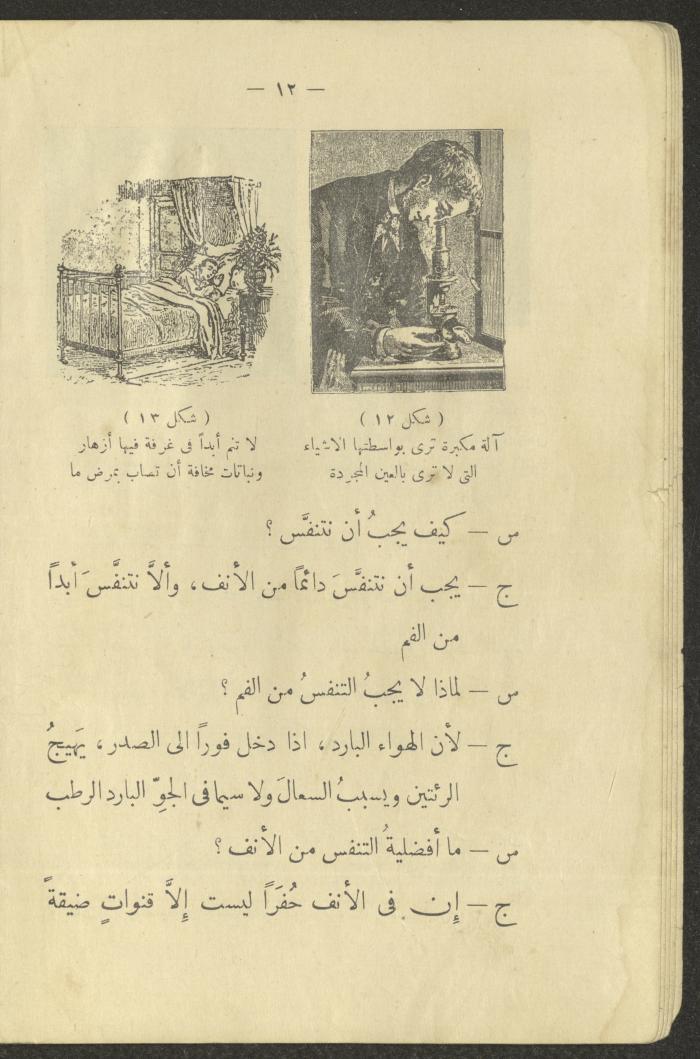 — ١٢ —
( شكل ١٢ )
آلة مكبرة ترى بواسطتها الاشياء
التى لا ترى بالعين المجردة
( شكل ١٣ )
لا تنم أبداً فى غرفة فيها أزهار
ونباتات مخافة أن تصاب بمرض ما
س — كيف يجبُ أن نتنفَّس ؟
ج — يجب أن نتنفَّسَ دائمًا من الأنف ، وألاَّ نتنفَّسَ أبداً
من الفم
س — لماذا لا يجبُ التنفسُ من الفم ؟
ج — لأن الهواء البارد ، اذا دخل فوراً الى الصدر ، يَهيجُ
الرئتين ويسببُ السعالَ ولا سيما فى الجوِّ البارد الرطب
س — ما أفضليةُ التنفس من الأنف ؟
ج — إِن فى الأنف حُفَراً ليست إِلاَّ قنواتٍ ضيقةً